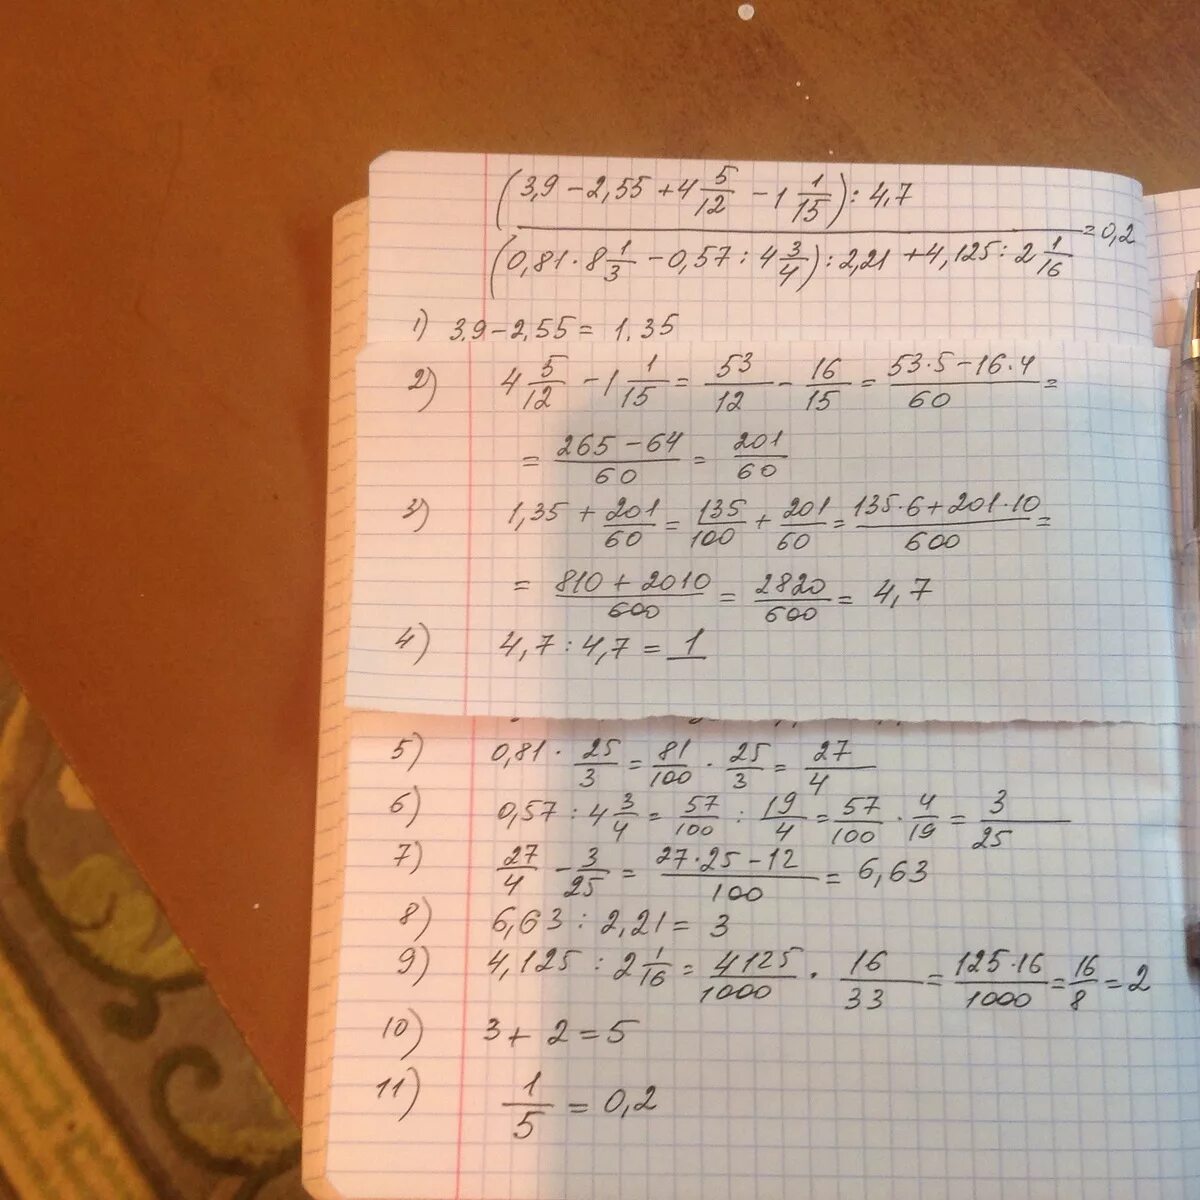 (3,9 − 2,55 + 4 5/12 − 1 1/15) : 4,7
(0,81 · 8 1/3 − 0,57 : 4 3/4) : 2,21 + 4,125 : 2 1/16 = 0,2
1) 3,9 − 2,55 = 1,35
2) 4 5/12 − 1 1/15 = 53/12 − 16/15 = (53·5 − 16·4)/60 =
= (265 − 64)/60 = 201/60
3) 1,35 + 201/60 = 135/100 + 201/60 = (135·6 + 201·10)/600 =
= (810 + 2010)/600 = 2820/600 = 4,7
4) 4,7 : 4,7 = 1
5) 0,81 · 25/3 = 81/100 · 25/3 = 27/4
6) 0,57 : 4 3/4 = 57/100 : 19/4 = 57/100 · 4/19 = 3/25
7) 27/4 − 3/25 = (27·25 − 12)/100 = 6,63
8) 6,63 : 2,21 = 3
9) 4,125 : 2 1/16 = 4125/1000 · 16/33 = (125·16)/1000 = 16/8 = 2
10) 3 + 2 = 5
11) 1/5 = 0,2